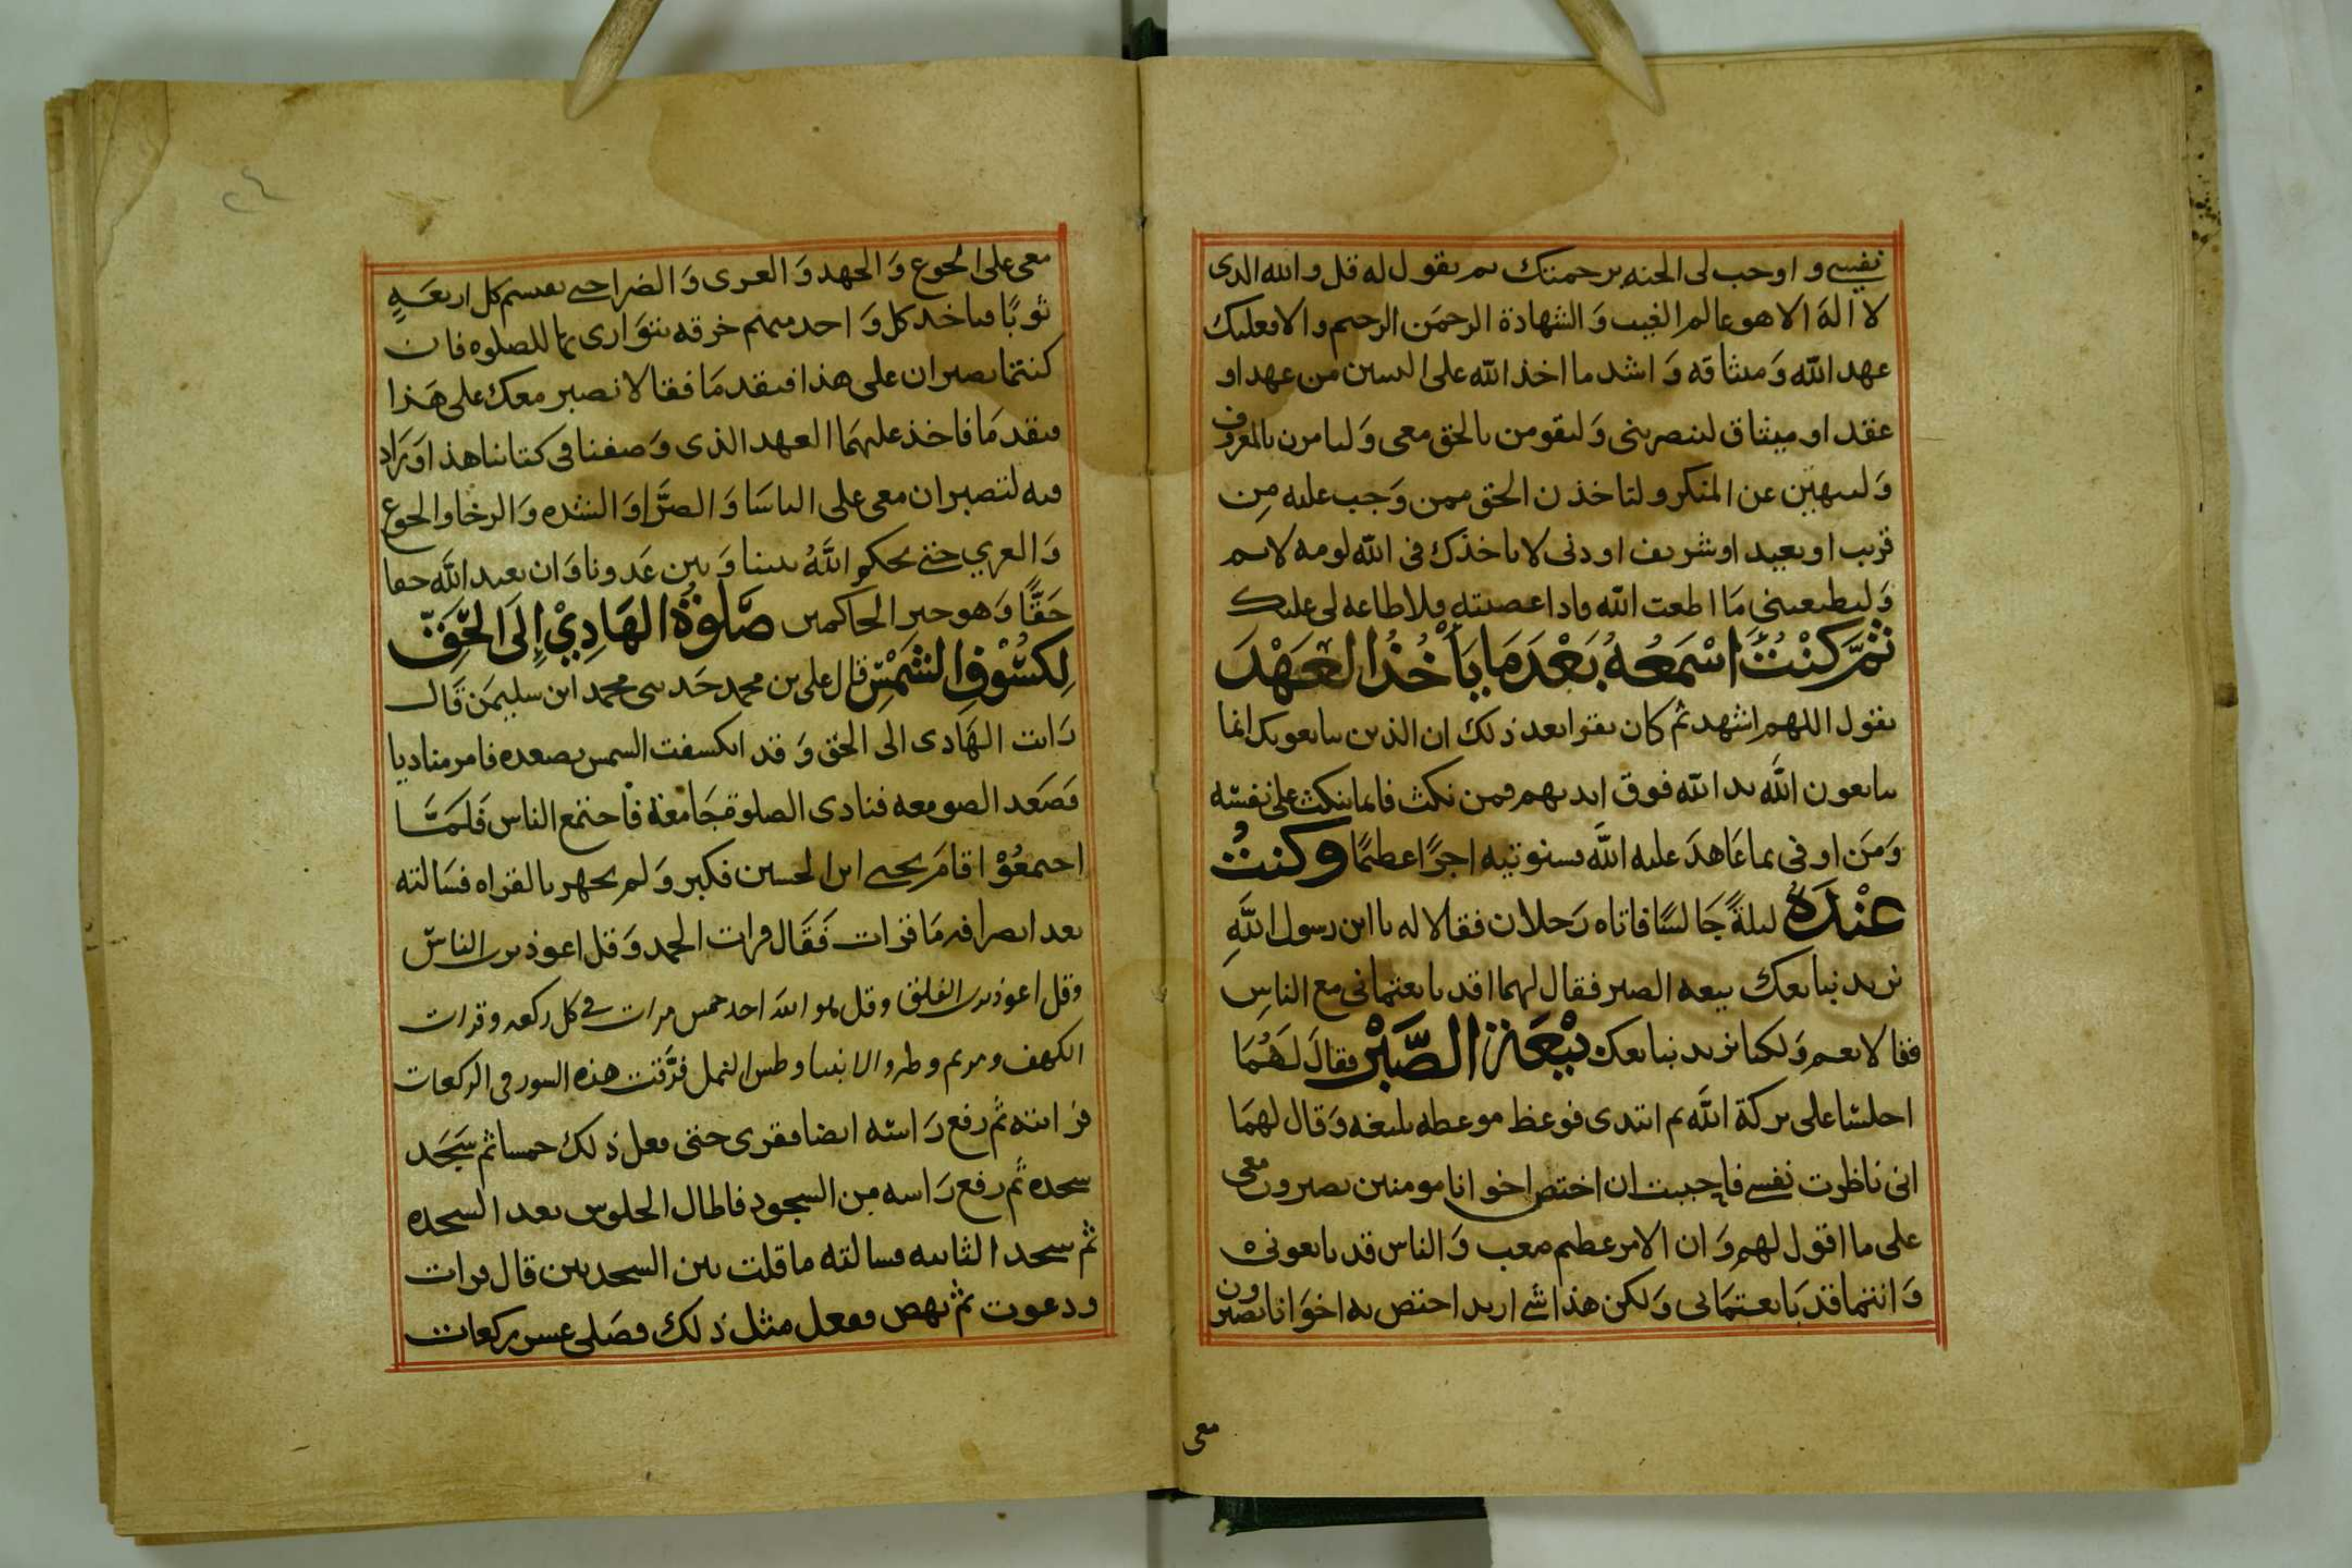 نفسي و اوجب لى الجنه برحمتك ثم يقول له قل والله الذى
لا اله الا هو عالم الغيب وَالشهادة الرحمَن الرحيم والا فعليك
عهد الله وَميثاقه وَاشد ما اخذ الله على النبيين من عهد او
عقد او ميثاق لتنصرننى وَلتقومن بالحق معى وَلتامرن بالمعروف
وَلتنهين عن المنكر ولتاخذن الحق ممن وَجب عليه مِن
قريب او بعيد او شريف او دنى لا ياخذك فى الله لومه لايم
وَلتطيعننى مَا اطعت الله فاذا عصيته فلا طاعه لى عليك
ثمَّ كنْتُ اسْمَعُهُ بَعْدَ مَا يَأْخُذُ العَهْدَ
يقول اللهم اشهد ثم كان يقرا بعد ذلك ان الذين يبايعونك انما
يبايعون اللَّه يد الله فوق ايديهم فمن نكث فانما ينكث على نفسه
وَمَن اوفى بما عَاهدَ عليه اللَّه فسنوتيه اجرًا عظيمًا وكنتُ
عنْدَهُ ليلةً جَالسًا فاتاه رَجلان فقالا له يا ابن رسول اللَّهِ
نريد نبايعك بيعه الصبر فقال لهما اقد بايعتمانى مع الناسِ
فقالا نعم وَلكنا نريد نبايعك بيْعَة الصَّبْر فقالَ لهُمَا
اجلسَا على بركة اللَّه ثم ابتدى فوعظ موعظه بليغه وَقال لهمَا
انى ناظرت نفسى فاحببت ان اختص اخوانا مومنين يصبرون معى
على ما اقول لهم وَان الامر عظيم صعب وَالناس قد بايعونى
وَانتما قد بَايعتمَانى وَلكن هذا شى اريد اختص به اخوَانا يصبرون
معى
٢٤
معى على الجوع وَالجهد وَالعرى وَالضراحتى نقسم كل اربعَةٍ
ثوبًا فياخذ كل وَاحد منهم خرقه يتوَارى بها للصلوه فان
كنتما تصبران على هذا فتقدمَا فقالا نصبر معك على هَذا
فتقدمَا فاخذ عليهمَا العهد الذى وَصفنا فى كتابنا هذا وَزاد
فيه لتصبران معى على الباسَا وَالضرَّا وَالشده وَالرخا والجوع
وَالعري حتى يحكم اللَّهُ بيننا وَبين عَدونا وَان يعبد اللَّه حقا
حَقًّا وَهو خير الحاكمين صَلوٰةُ الهَادِيْ إِلَى الحَقِّ
لِكسُوْفِ الشَمْسِ قال على بن محمد حَدثنى محمد ابن سليمَن قَال
رَايت الهَادى الى الحَق وَقد انكسفت الشمس بصعده فامر مناديا
فصَعد الصومعه فنادى الصلوة جَامعة فاجتمع الناس فَلمَّا
اجتمعُوْا قامَ يحيى ابن الحسين فكبر وَلم يجهر بالقراه فسَالته
بعد انصرافه مَا قرات فَقَال قرات الحمد وَقل اعوذ برب الناس
وقل اعوذ برب الفلق وقل هو الله احد خمس مرات فى كل ركعه وقرات
الكهف ومريم وطه والانبيا وطس النمل فرَّقت هذه السور فى الركعات
قراته ثم رفع رَاسه ايضا فقرى حتى فعل ذلك خمسا ثم سَجَد
سجده ثم رفع رَاسه مِن السجود فاطال الجلوس بعد السجده
ثم سجد الثانيه فسالته ما قلت بين السجدتين قال قرات
ودعوت ثم نهض ففعل مثل ذلك فصَلى عشر ركعات